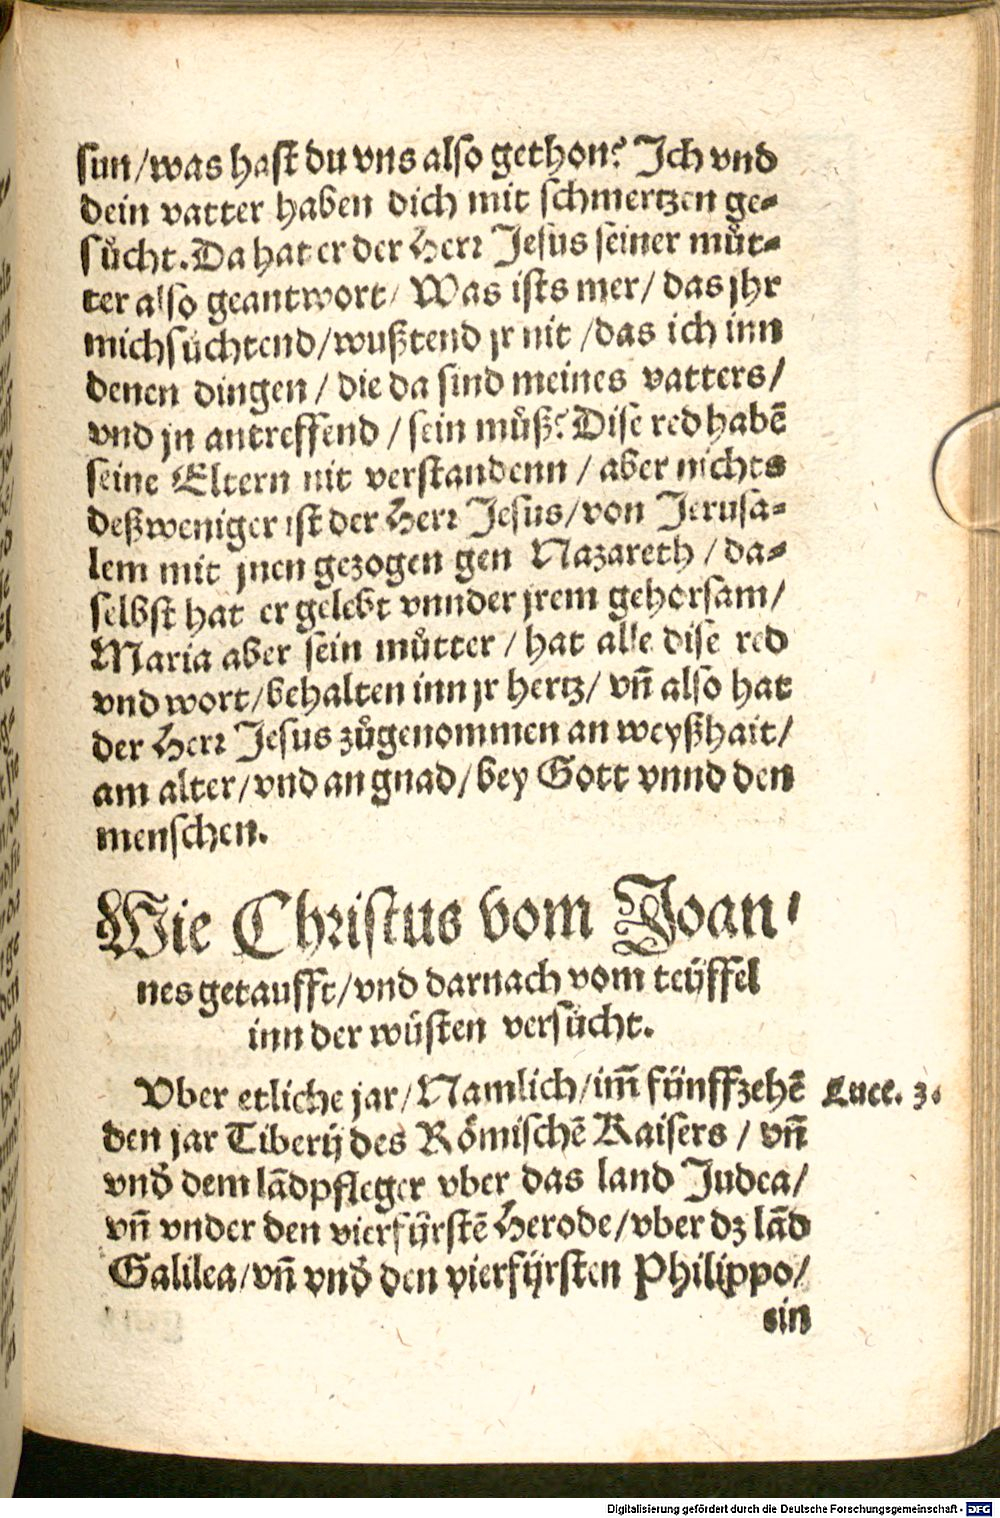 sun/was hast du vns also gethon? Ich vnd
dein vatter haben dich mit schmertzen ge-
sůcht. Da hat er der Herr Jesus seiner můt-
ter also geantwort/ Was ists mer/ das jhr
mich sůchtend/wußtend jr nit /das ich inn
denen dingen / die da sind meines vatters/
vnd jn antreffend / sein můß? Dise red habẽ
seine Eltern nit verstandenn / aber nichts
deßweniger ist der Herr Jesus/von Jerusa-
lem mit jnen gezogen gen Nazareth / da-
selbst hat er gelebt vnnder jrem gehorsam/
Maria aber sein můtter / hat alle dise red
vnd wort/behalten inn jr hertz/ vñ also hat
der Herr Jesus zůgenommen an weyßhait/
am alter/vnd an gnad/bey Gott vnnd den
menschen.
Wie Christus vom Joan-
nes getaufft/vnd darnach vom teüffel
inn der wüsten versůcht.
Vber etliche jar/Namlich/im̃ fünffzehẽ
Luce. 3.
den jar Tiberij des Römischẽ Kaisers / vñ
vnd̓ dem lãdpfleger vber das land Judea/
vñ vnder den vierfürstẽ Herode/vber dz lãd
Galilea/vñ vnd̓ den vierfürsten Philippo/
ein
Digitalisierung gefördert durch die Deutsche Forschungsgemeinschaft - DFG